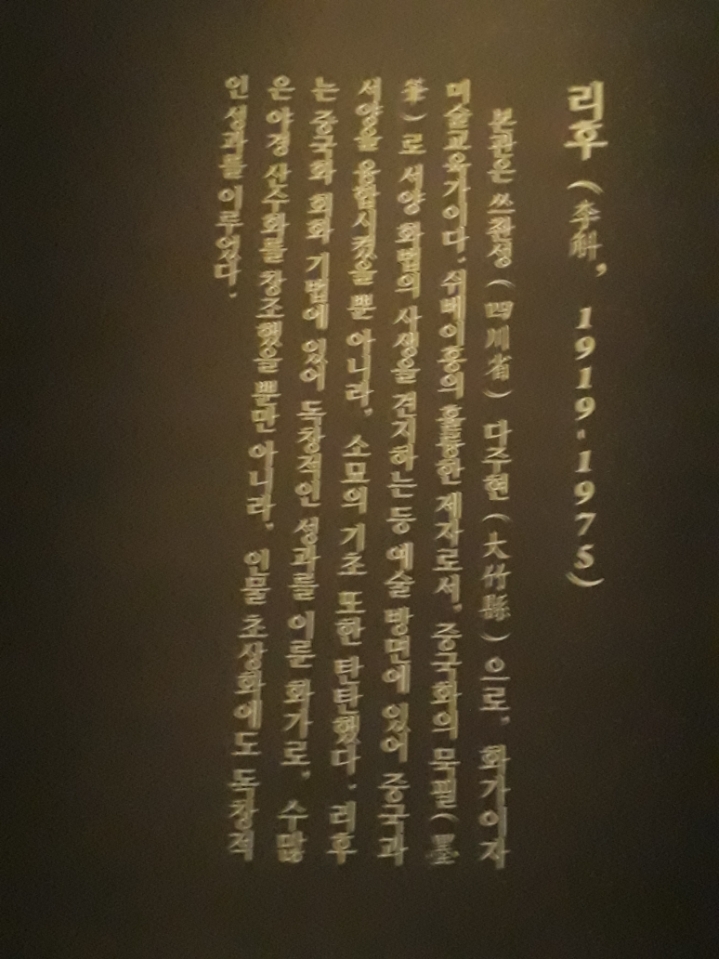 리후 (李斛, 1919-1975)
본관은 쓰촨성 (四川省) 다주현 (大竹縣) 으로, 화가이자
미술교육가이다. 쉬베이홍의 훌륭한 제자로서, 중국화의 묵필 (墨
筆) 로 서양 화법의 사생을 견지하는 등 예술 방면에 있어 중국과
서양을 융합시켰을 뿐 아니라, 소묘의 기초 또한 탄탄했다. 리후
는 중국화 회화 기법에 있어 독창적인 성과를 이룬 화가로, 수많
은 야경 산수화를 창조했을 뿐만 아니라, 인물 초상화에도 독창적
인 성과를 이루었다.